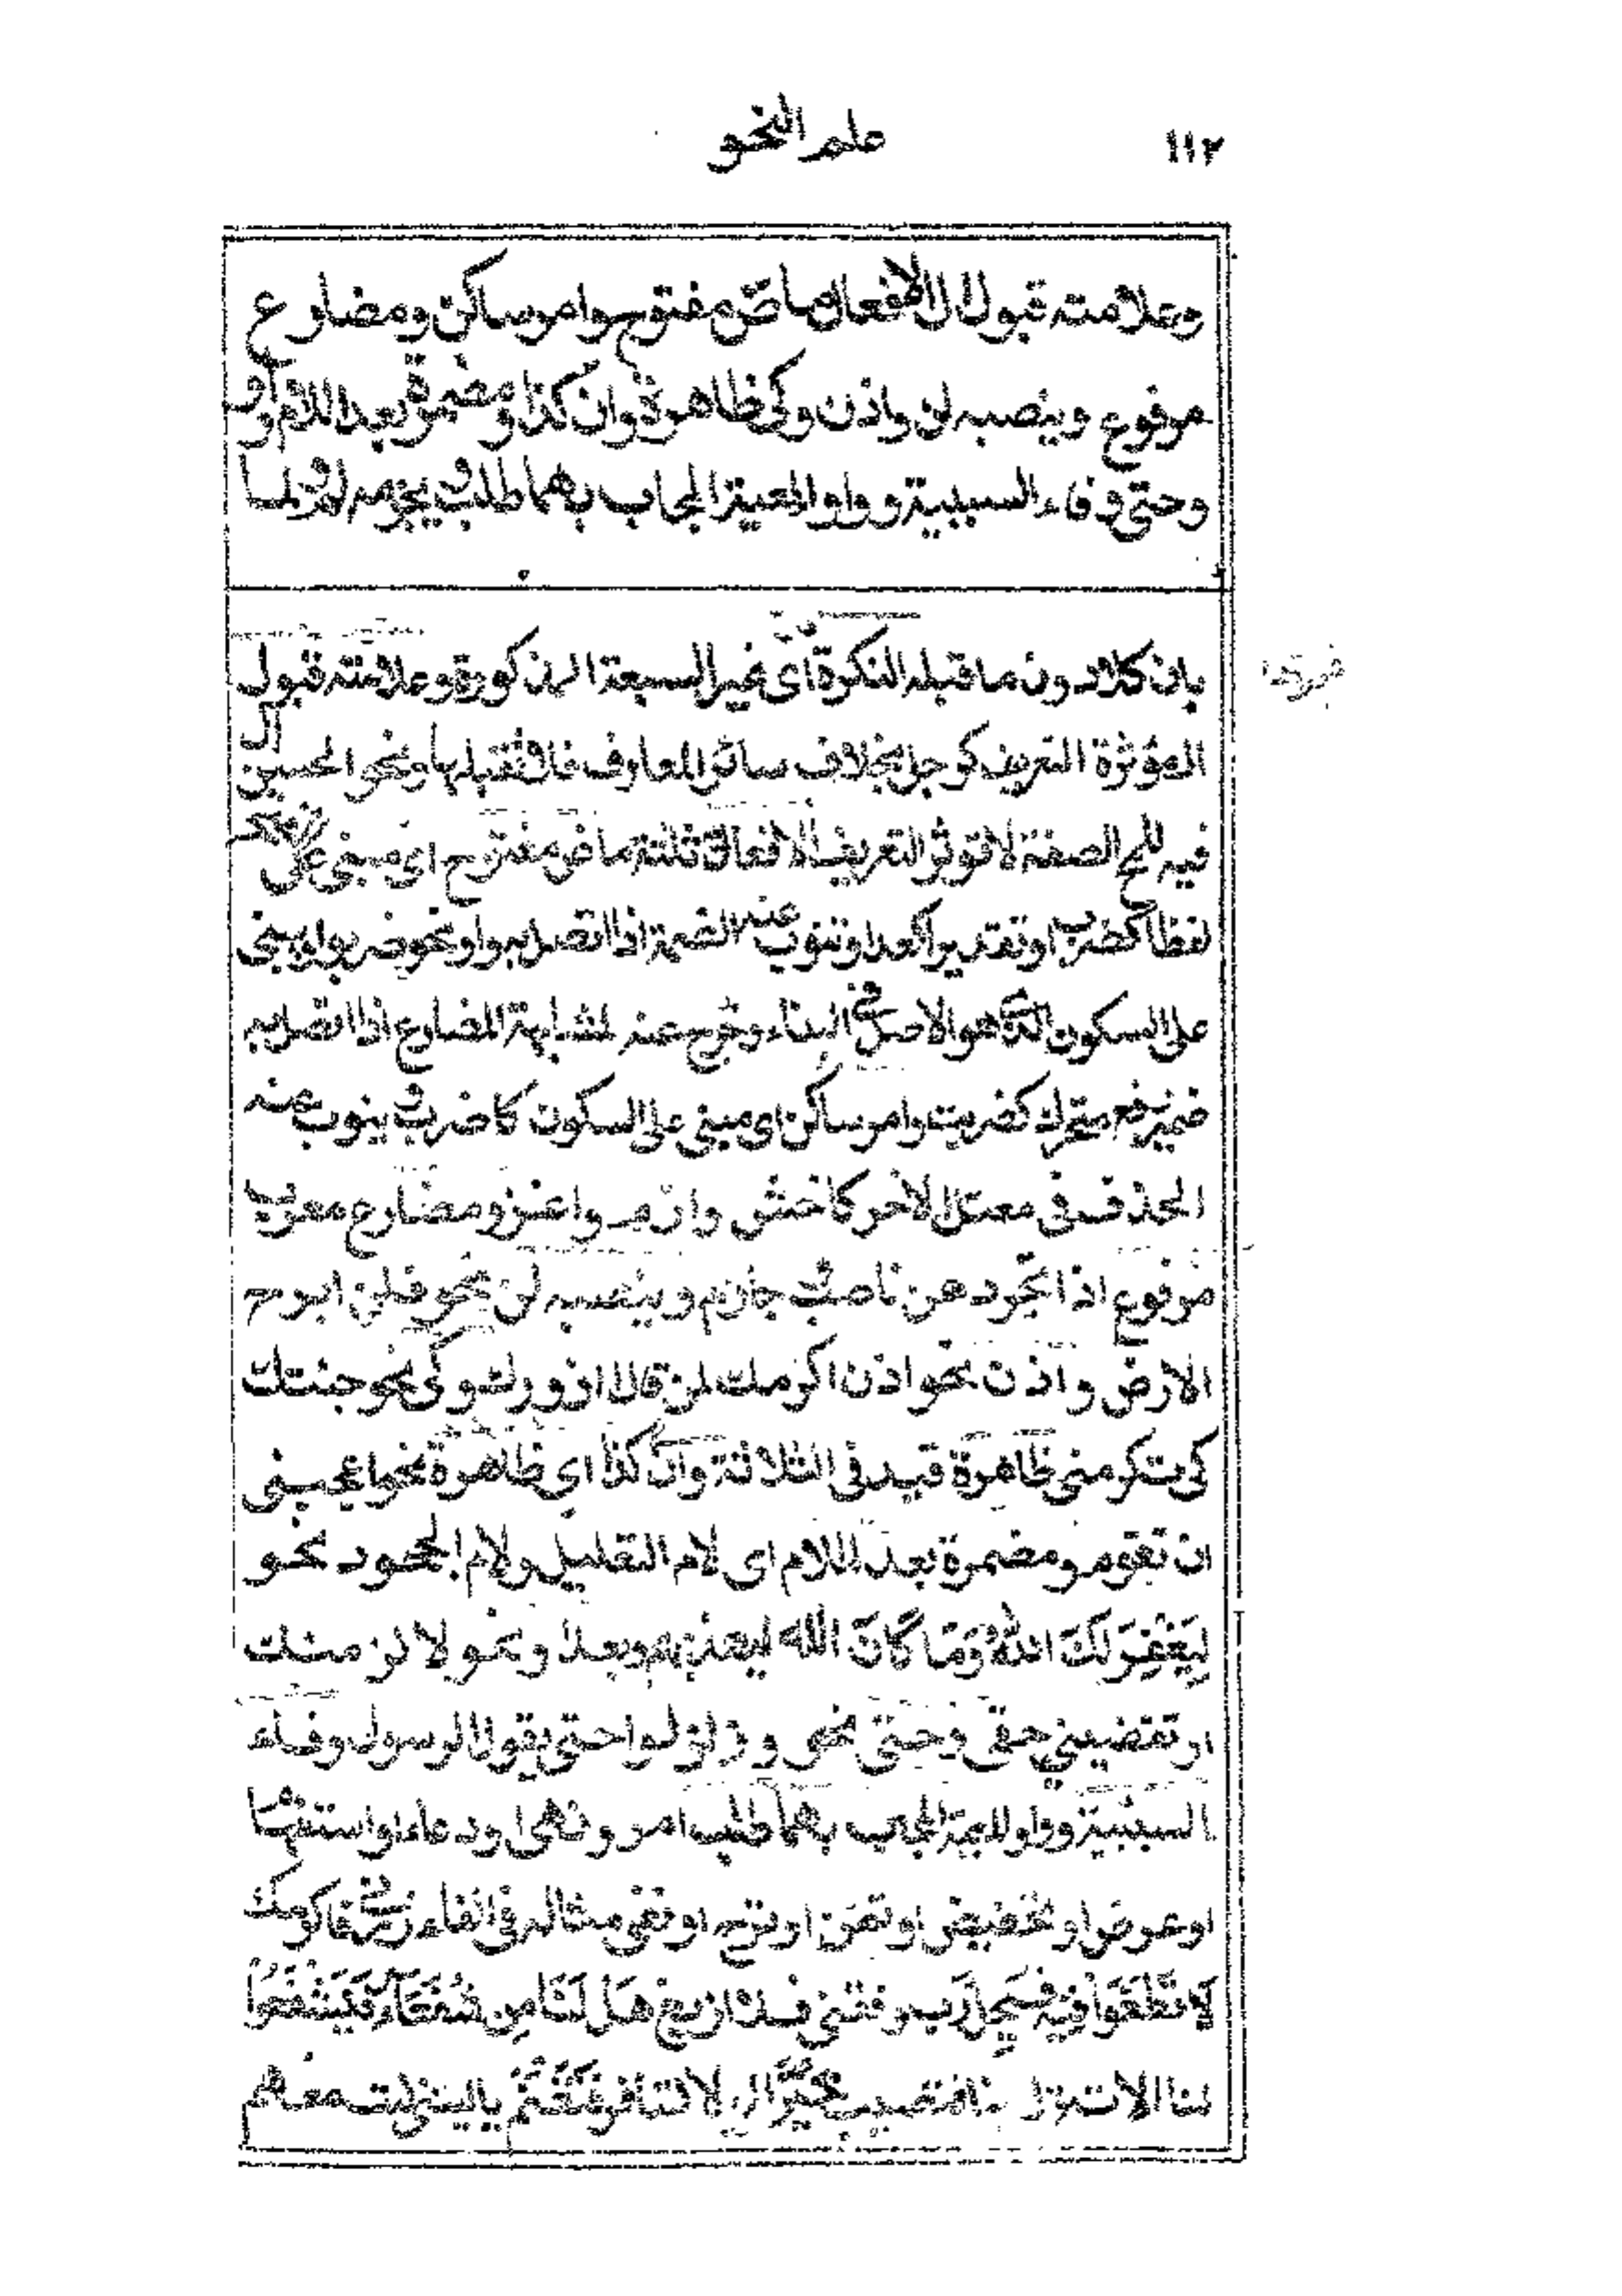 ١١٢
علم النحو
وعلامته قبول ال الافعال ماض مفتوح وامر ساكن ومضارع
مرفوع وينصبه لن واذن وكى ظاهرة وان كذا ومضمرة بعد اللام واو
وحتى وفاء السببية وواو المعية المجاب بهما طلب ويجزمه لم ولما
بان كلا دون ما قبله النكرة اى غير السبعة المذكورة وعلامته قبول ال
المؤثرة التعريف كرجل بخلاف سائر المعارف فلا تقبلها ونحو الحسين
فيه للمح الصفة لا تؤثر التعريف الافعال ثلثة ماض مفتوح اى مبنى على
لفظا كضرب او تقديرا كعدا وتنوب عنه الضمة اذا اتصل به واو نحو ضربوا ويبنى
على السكون الذى هو الاصل فى البناء وخرج عنه لمشابهة المضارع اذا اتصل به
ضمير رفع متحرك كضربت وامر ساكن اى مبنى على السكون كاضرب وينوب عنه
الحذف فى معتل الاخر كاخش وارم واغز ومضارع معرب
مرفوع اذا تجرد عن ناصب جازم وينصبه لن نحو فلن ابرح
الارض واذن نحو اذن اكرمك لمن قال ازورك وكى نحو جئتك
كى تكرمنى ظاهرة قيد فى الثلاثة وان كذا اى ظاهرة نحو اعجبنى
ان تقوم ومضمرة بعد اللام اى لام التعليل ولام الجحود نحو
لِيَغْفِرَ لَكَ اللهُ وَمَا كَانَ الله ليعذبهم وبعد او نحو لالزمنك
او تقضينى حقى وحتى نحو وزلزلوا حتى يقول الرسول وفاء
السببية وواو المعية المجاب بهما طلب امر ونهى او دعاء او استفهام
او عرض او تحضيض او تمن او ترج او نفى مثاله فى الفاء زرنى فاكرمك
لَا تَطْغَوْا فِيْهِ فَيَحِلَّ رب وفقنى فلا ازيغ هَلْ لَنَا مِن شُفَعَآءَ فَيَشْفَعُوْا
لنا الا تنزل فتصيب خيرا لا تسافر فتغنم يا ليتنى كنت معهم